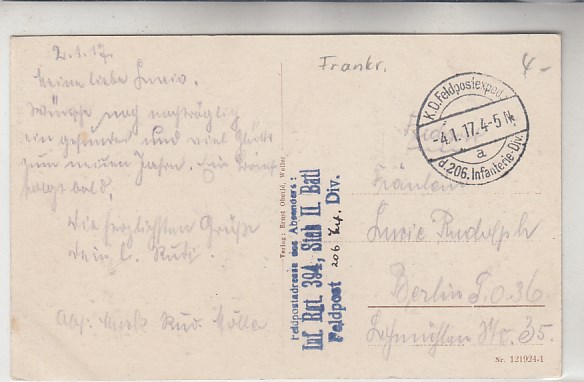 2.1.17.
Meine liebe Lucie.
Wünsche noch nachträglich
ein gesundes und viel Glück
zum neuen Jahre. Ein Brief
folgt bald.
Die herzlichsten Grüße
Dein l. Rudi.
Abs: Musk Rud.
Verlag: Ernst
Feldpostadresse des Absenders:
Inf. Rgt. 394, Stab II. Batl
Feldpost 206 Inf. Div.
Frankr.
4-
K.D. Feldpostexped.
-4.1.17.4-5 N.
a
d. 206. Infanterie-Div.
Fräulein
Lucie Rudolph
Berlin S.O. 36.
No. 35.
Nr. 121924-1